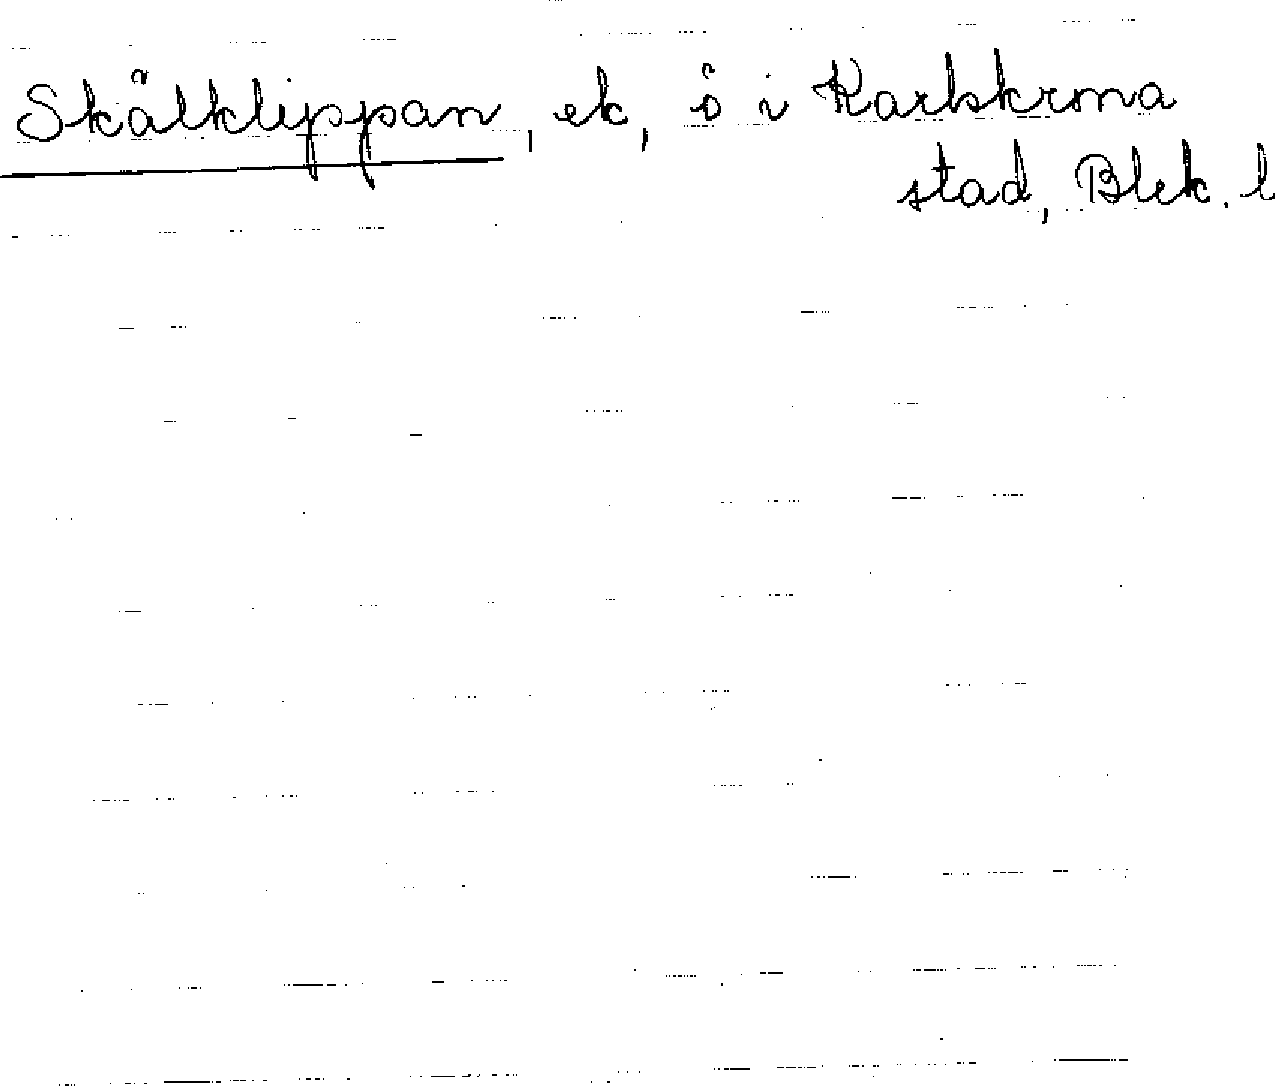 Skålklippan, ek, ö i Karlskrona
stad, Blek. l